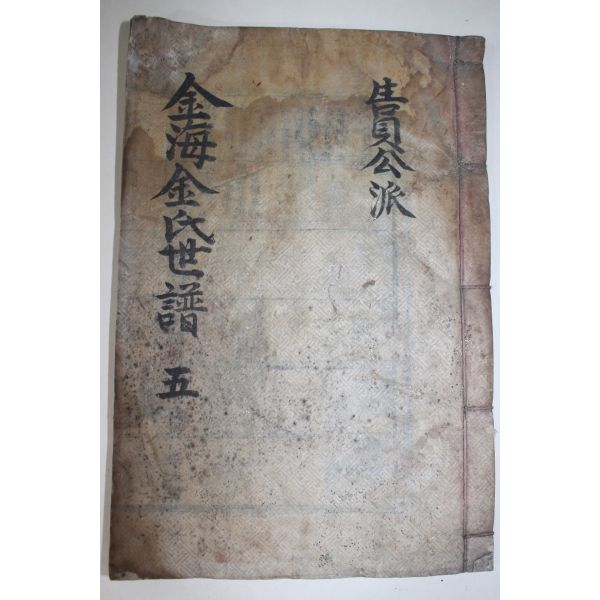 生員公派
金海金氏世譜 五